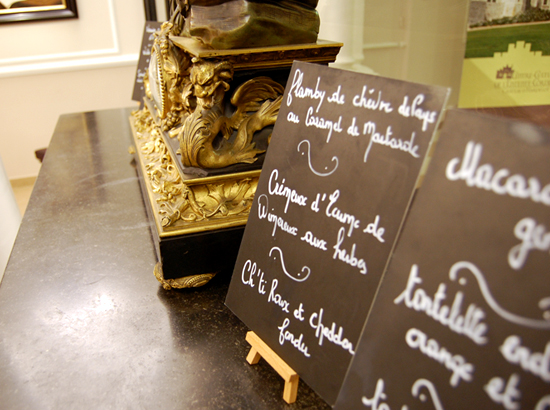 Flamby de chèvre de Pays
au Caramel de Moutarde
Crémeux d'Ecume de
Wimereux aux herbes
Ch'ti Roux et Cheddar
fondu
Macaro
tartelette
orange et